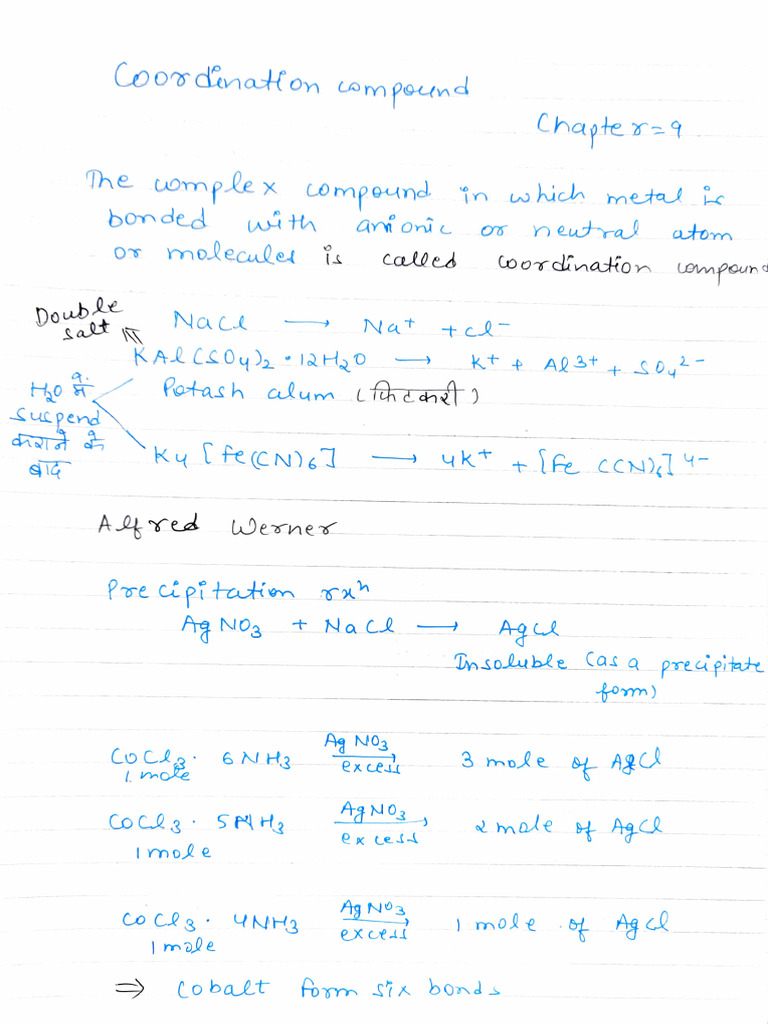 Coordination compound
Chapter = 9
The complex compound in which metal is
bonded with anionic or neutral atom
or molecules is called coordination compound
Double
salt
NaCl ⟶ Na⁺ + Cl⁻
KAl(SO₄)₂·12H₂O ⟶ K⁺ + Al³⁺ + SO₄²⁻
Potash alum (फिटकरी)
H₂O में
suspend
कराने के
बाद
K₄[Fe(CN)₆] ⟶ 4K⁺ + [Fe(CN)₆]⁴⁻
Alfred Werner
Precipitation rxⁿ
AgNO₃ + NaCl ⟶ AgCl
Insoluble (as a precipitate
form)
CoCl₃· 6NH₃ AgNO₃ excess ⟶ 3 mole of AgCl
1 mole
CoCl₃· 5NH₃ AgNO₃ excess ⟶ 2 mole of AgCl
1 mole
CoCl₃· 4NH₃ AgNO₃ excess ⟶ 1 mole of AgCl
1 mole
⇒ Cobalt form six bonds